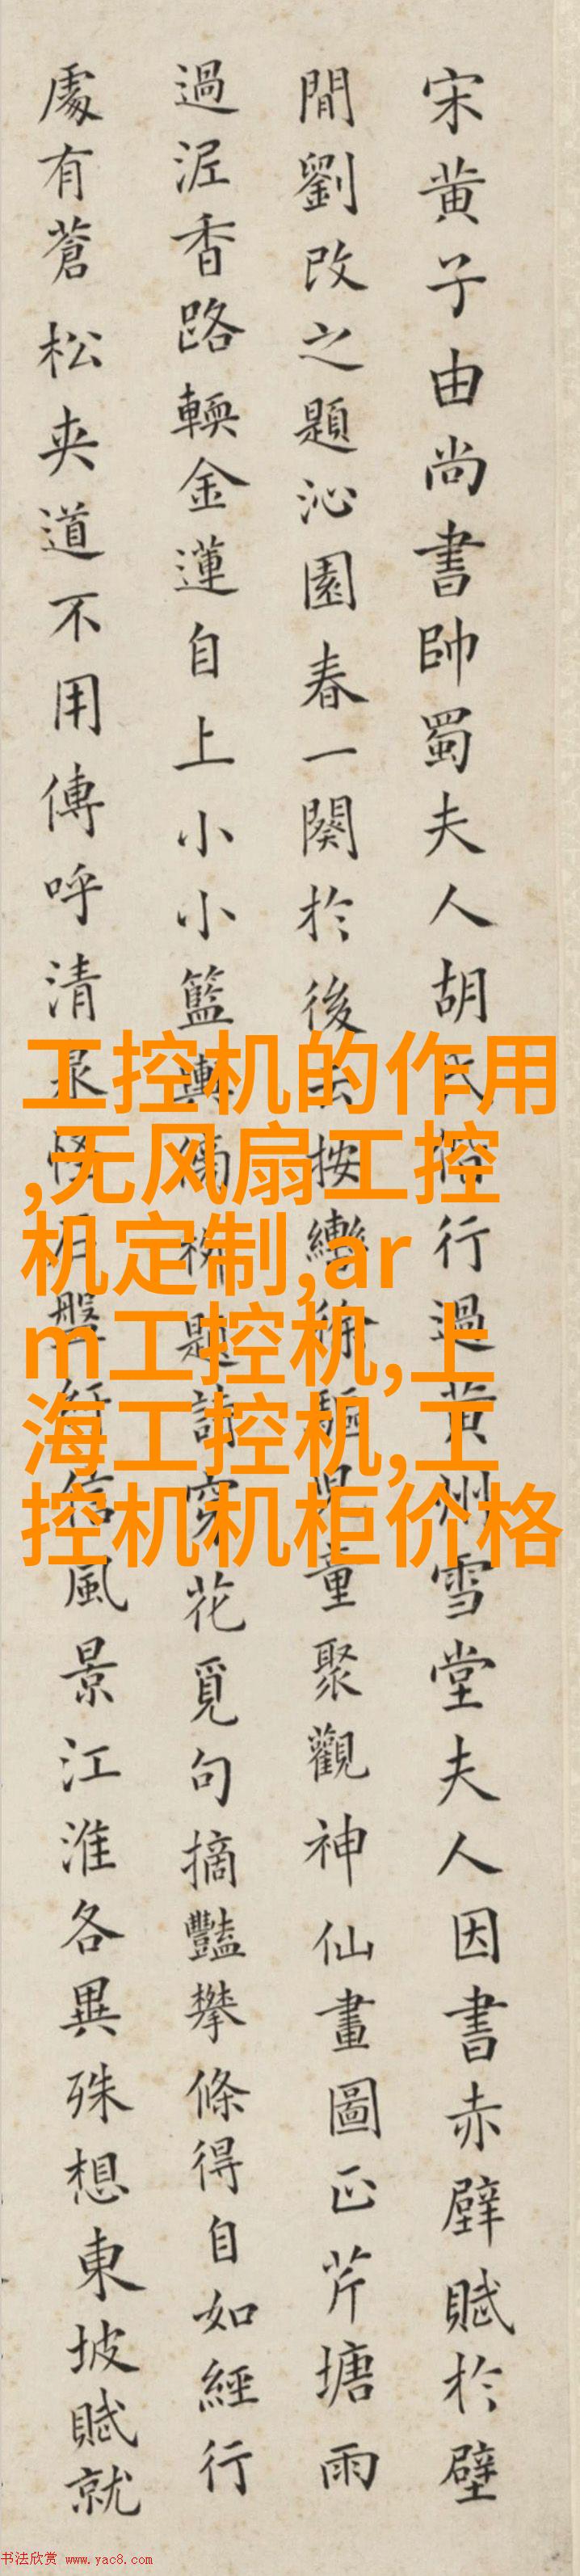 宋黄子由尚書帥蜀夫人胡氏行過黄州雪堂夫人因書赤壁賦於壁
間劉改之題沁園春一闋於後云按轡徐驅兒童聚觀神仙畫圖正芹塘雨
過泥香路輭金蓮自上小小籃輿傍柳題詩穿花覓句摘豔攀條得自如經行
處有蒼松夾道不用傳呼清泉怪石盤紆信風景江淮各異殊想東坡賦就
工控机的作用
,无风扇工控
机定制,ar
m工控机,上
海工控机,工
控机机柜价格
书法欣赏 www.yac8.com